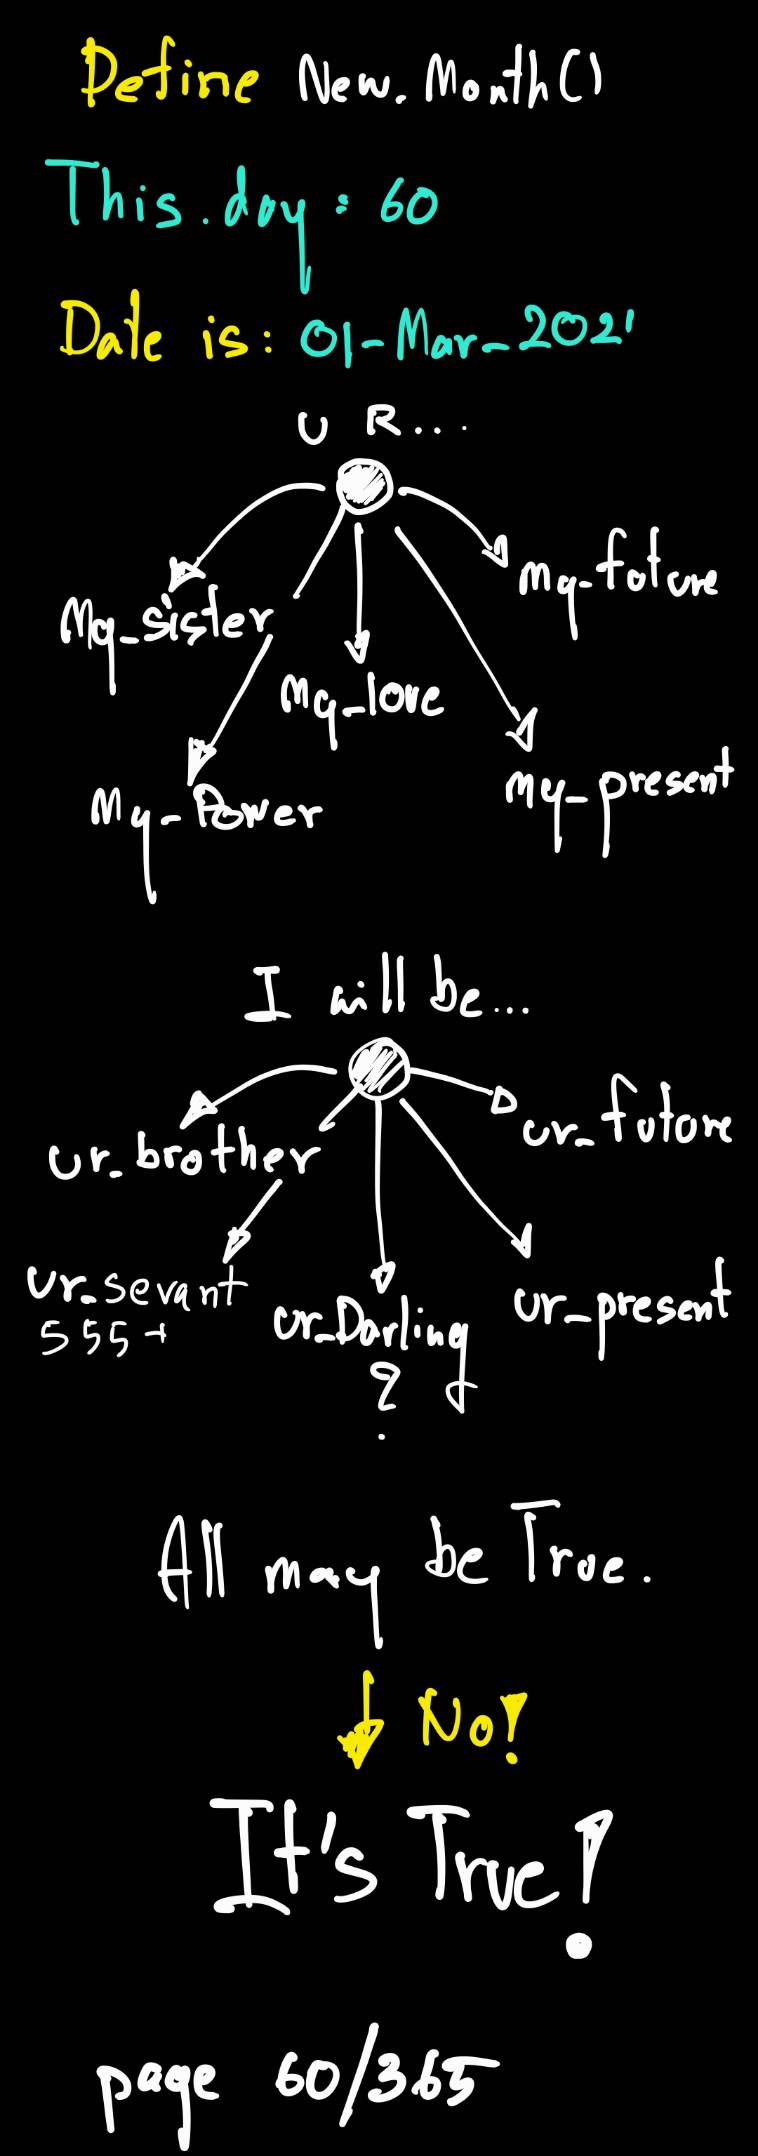 Define New.Month()
This.day: 60
Date is: 01-Mar-2021
U R...
My-sister
my-future
my-love
My-Power
my-present
I will be...
ur-brother
ur-future
ur-sevant
555+
ur-Darling
?
ur-present
All may be True.
No!
It's True!
page 60/365